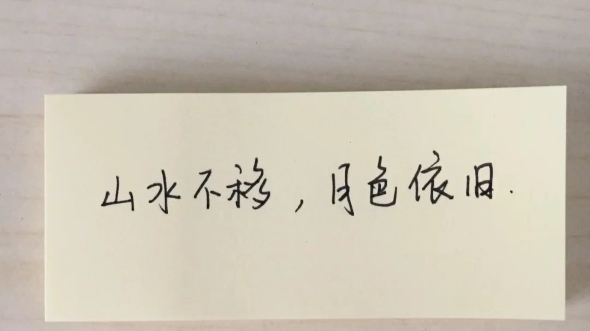 山水不移，月色依旧.